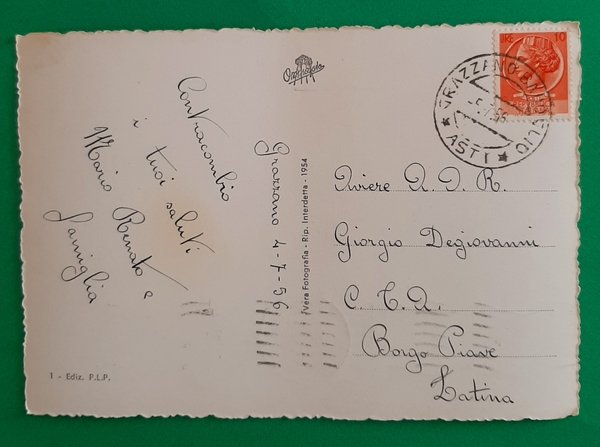 Contracambio
i tuoi saluti
Mario Renato e
famiglia
Grazzano 4-7-56
Vera Fotografia - Rip. Interdetta - 1954
1 - Ediz. P.L.P.
10
GRAZZANO BADOGLIO
ASTI
Aviere A.D.R.
Giorgio Degiovanni
C.T.A.
Borgo Piave
Latina